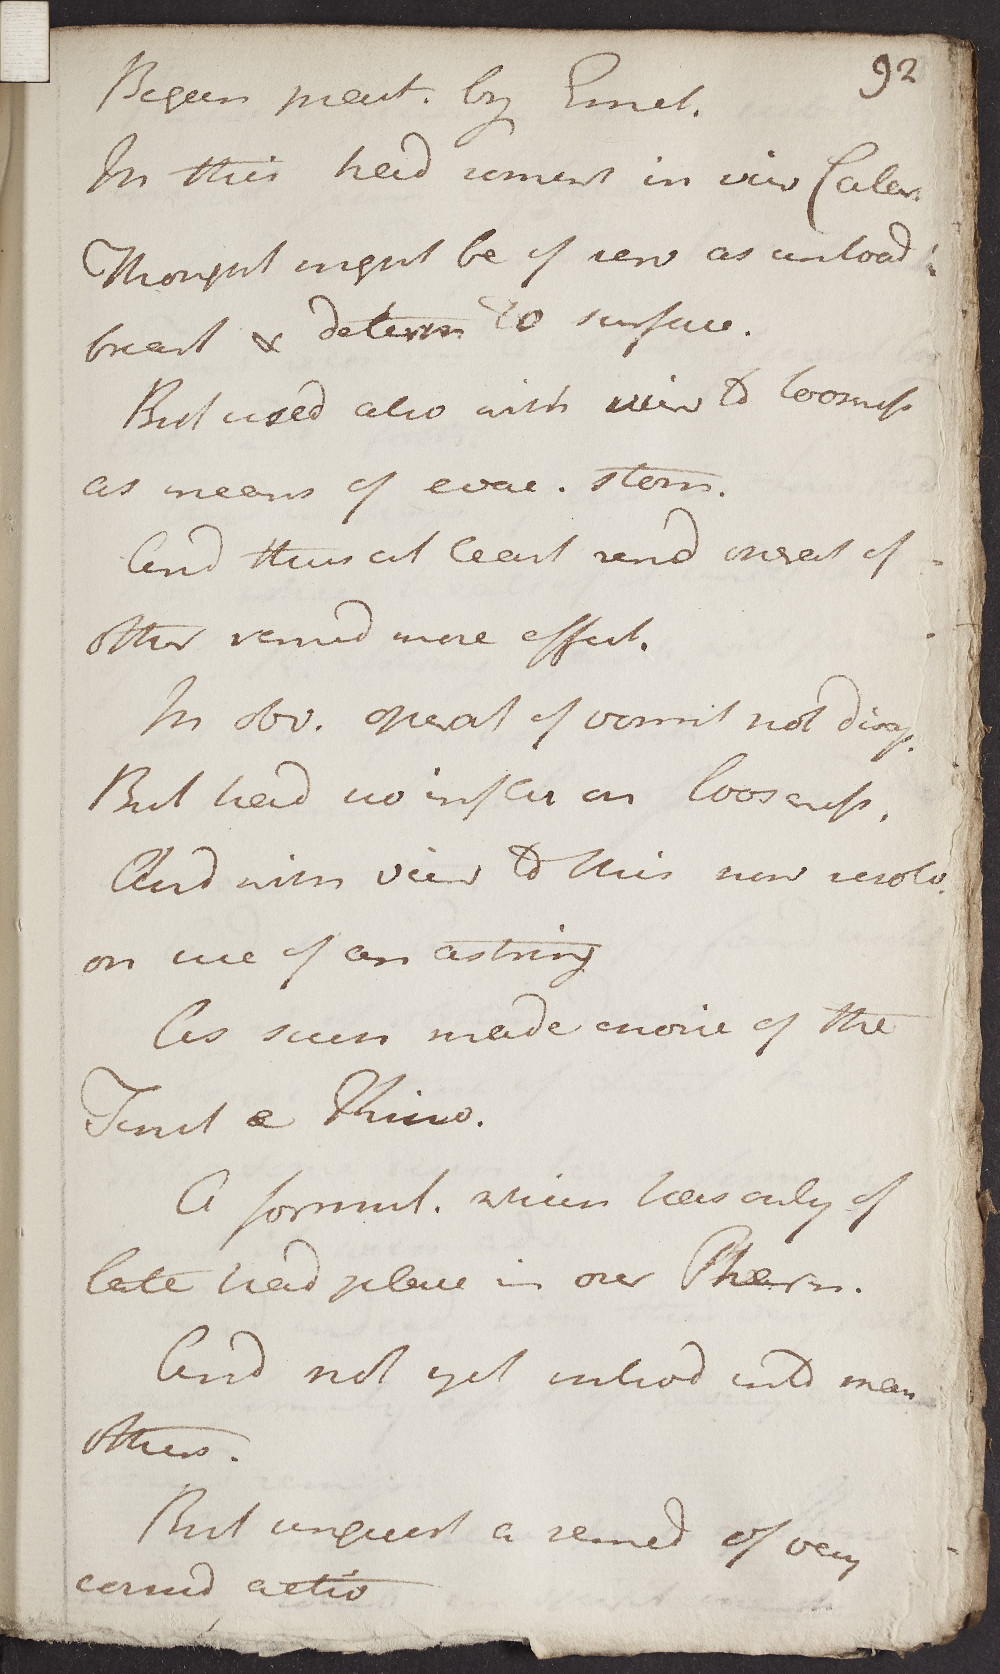 92
Began pract. by Emet.
In this had somewt in view Catar.
Thought might be of serv as unload
breast & determ to surface.
But used also with view to loosness
as means of evac. stom.
And thus at least rend operat of
other remed more effect.
In obv. operat of vomit not disap.
But had no influ on loosness.
And with view to this now resolv.
on use of an astring
As such made choice of the
Tinct e Kino.
A formul. which has only of
late had place in our Pharm.
And not yet introd into man
others.
But unquest a remed of very
consid actio